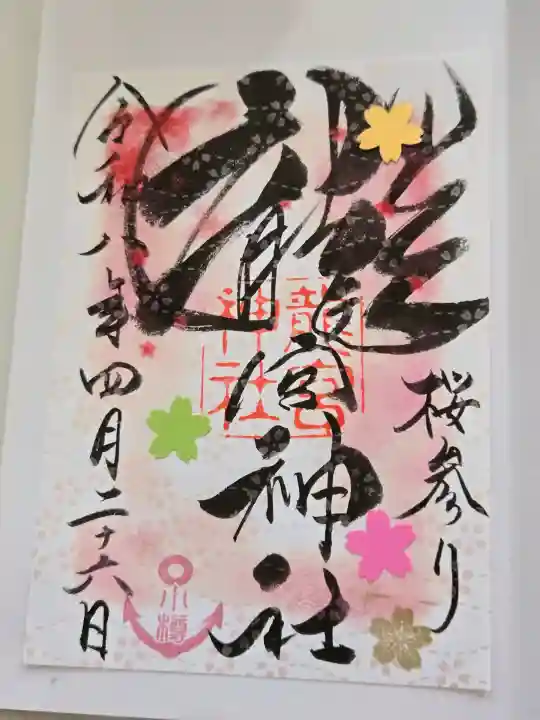 桜参り
龍宮神社
龍宮
神社
令和八年四月二十六日
小樽